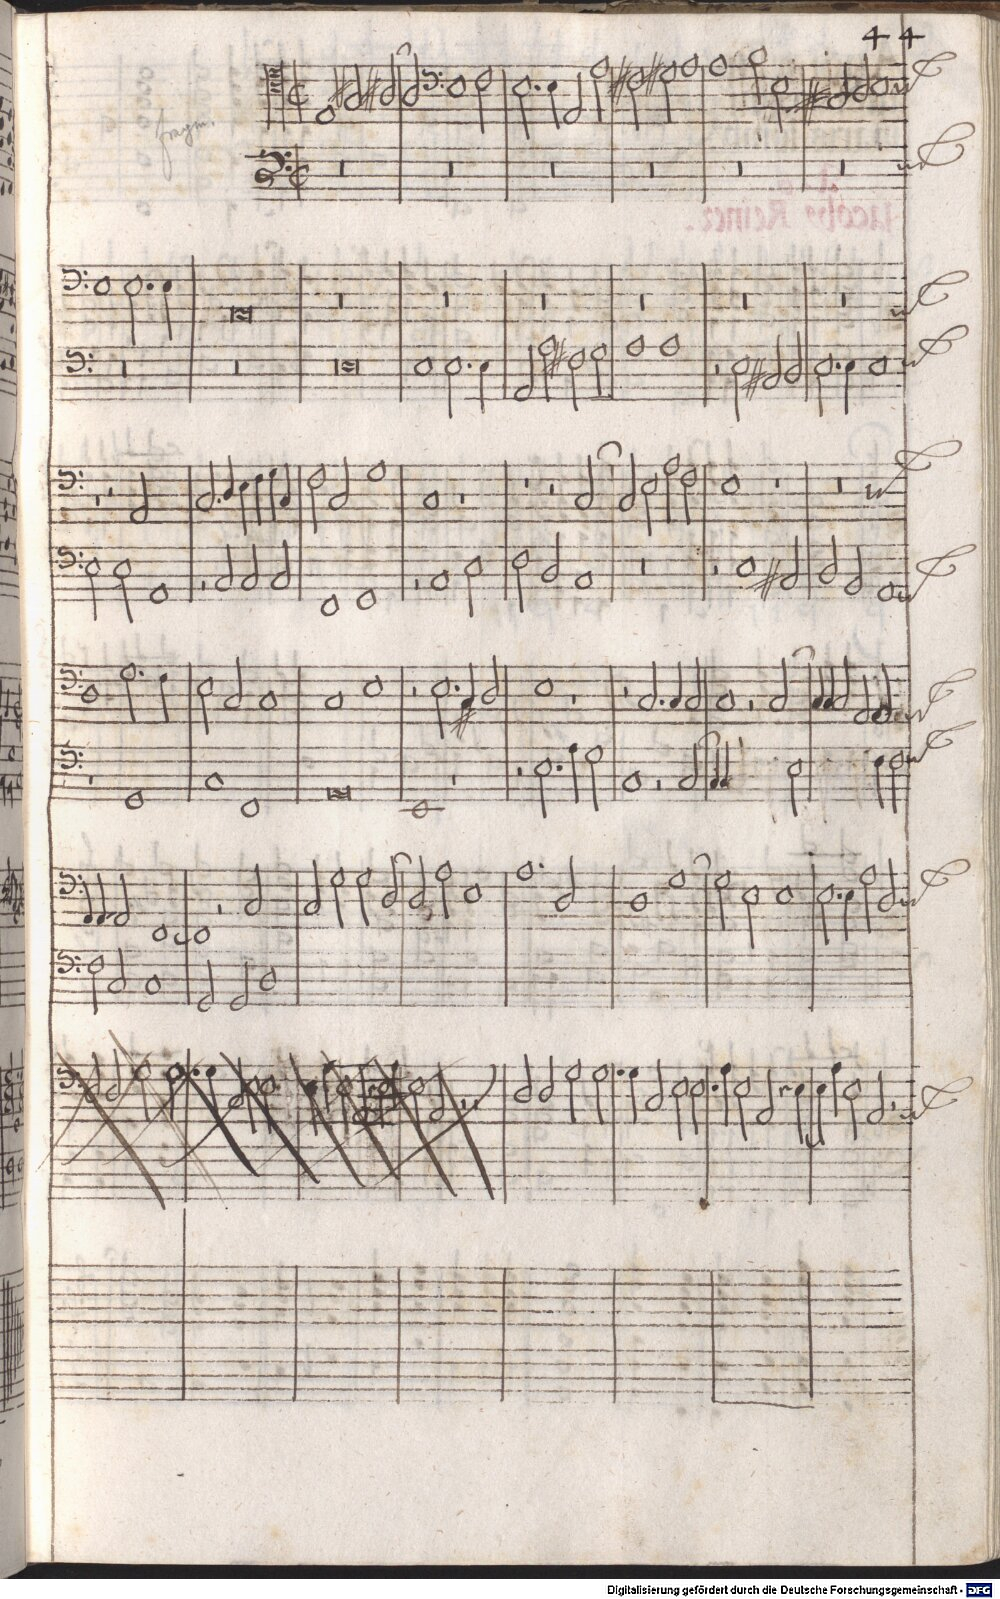 44
fragm.
Jacobs Reiner.
Digitalisierung gefördert durch die Deutsche Forschungsgemeinschaft - DFG